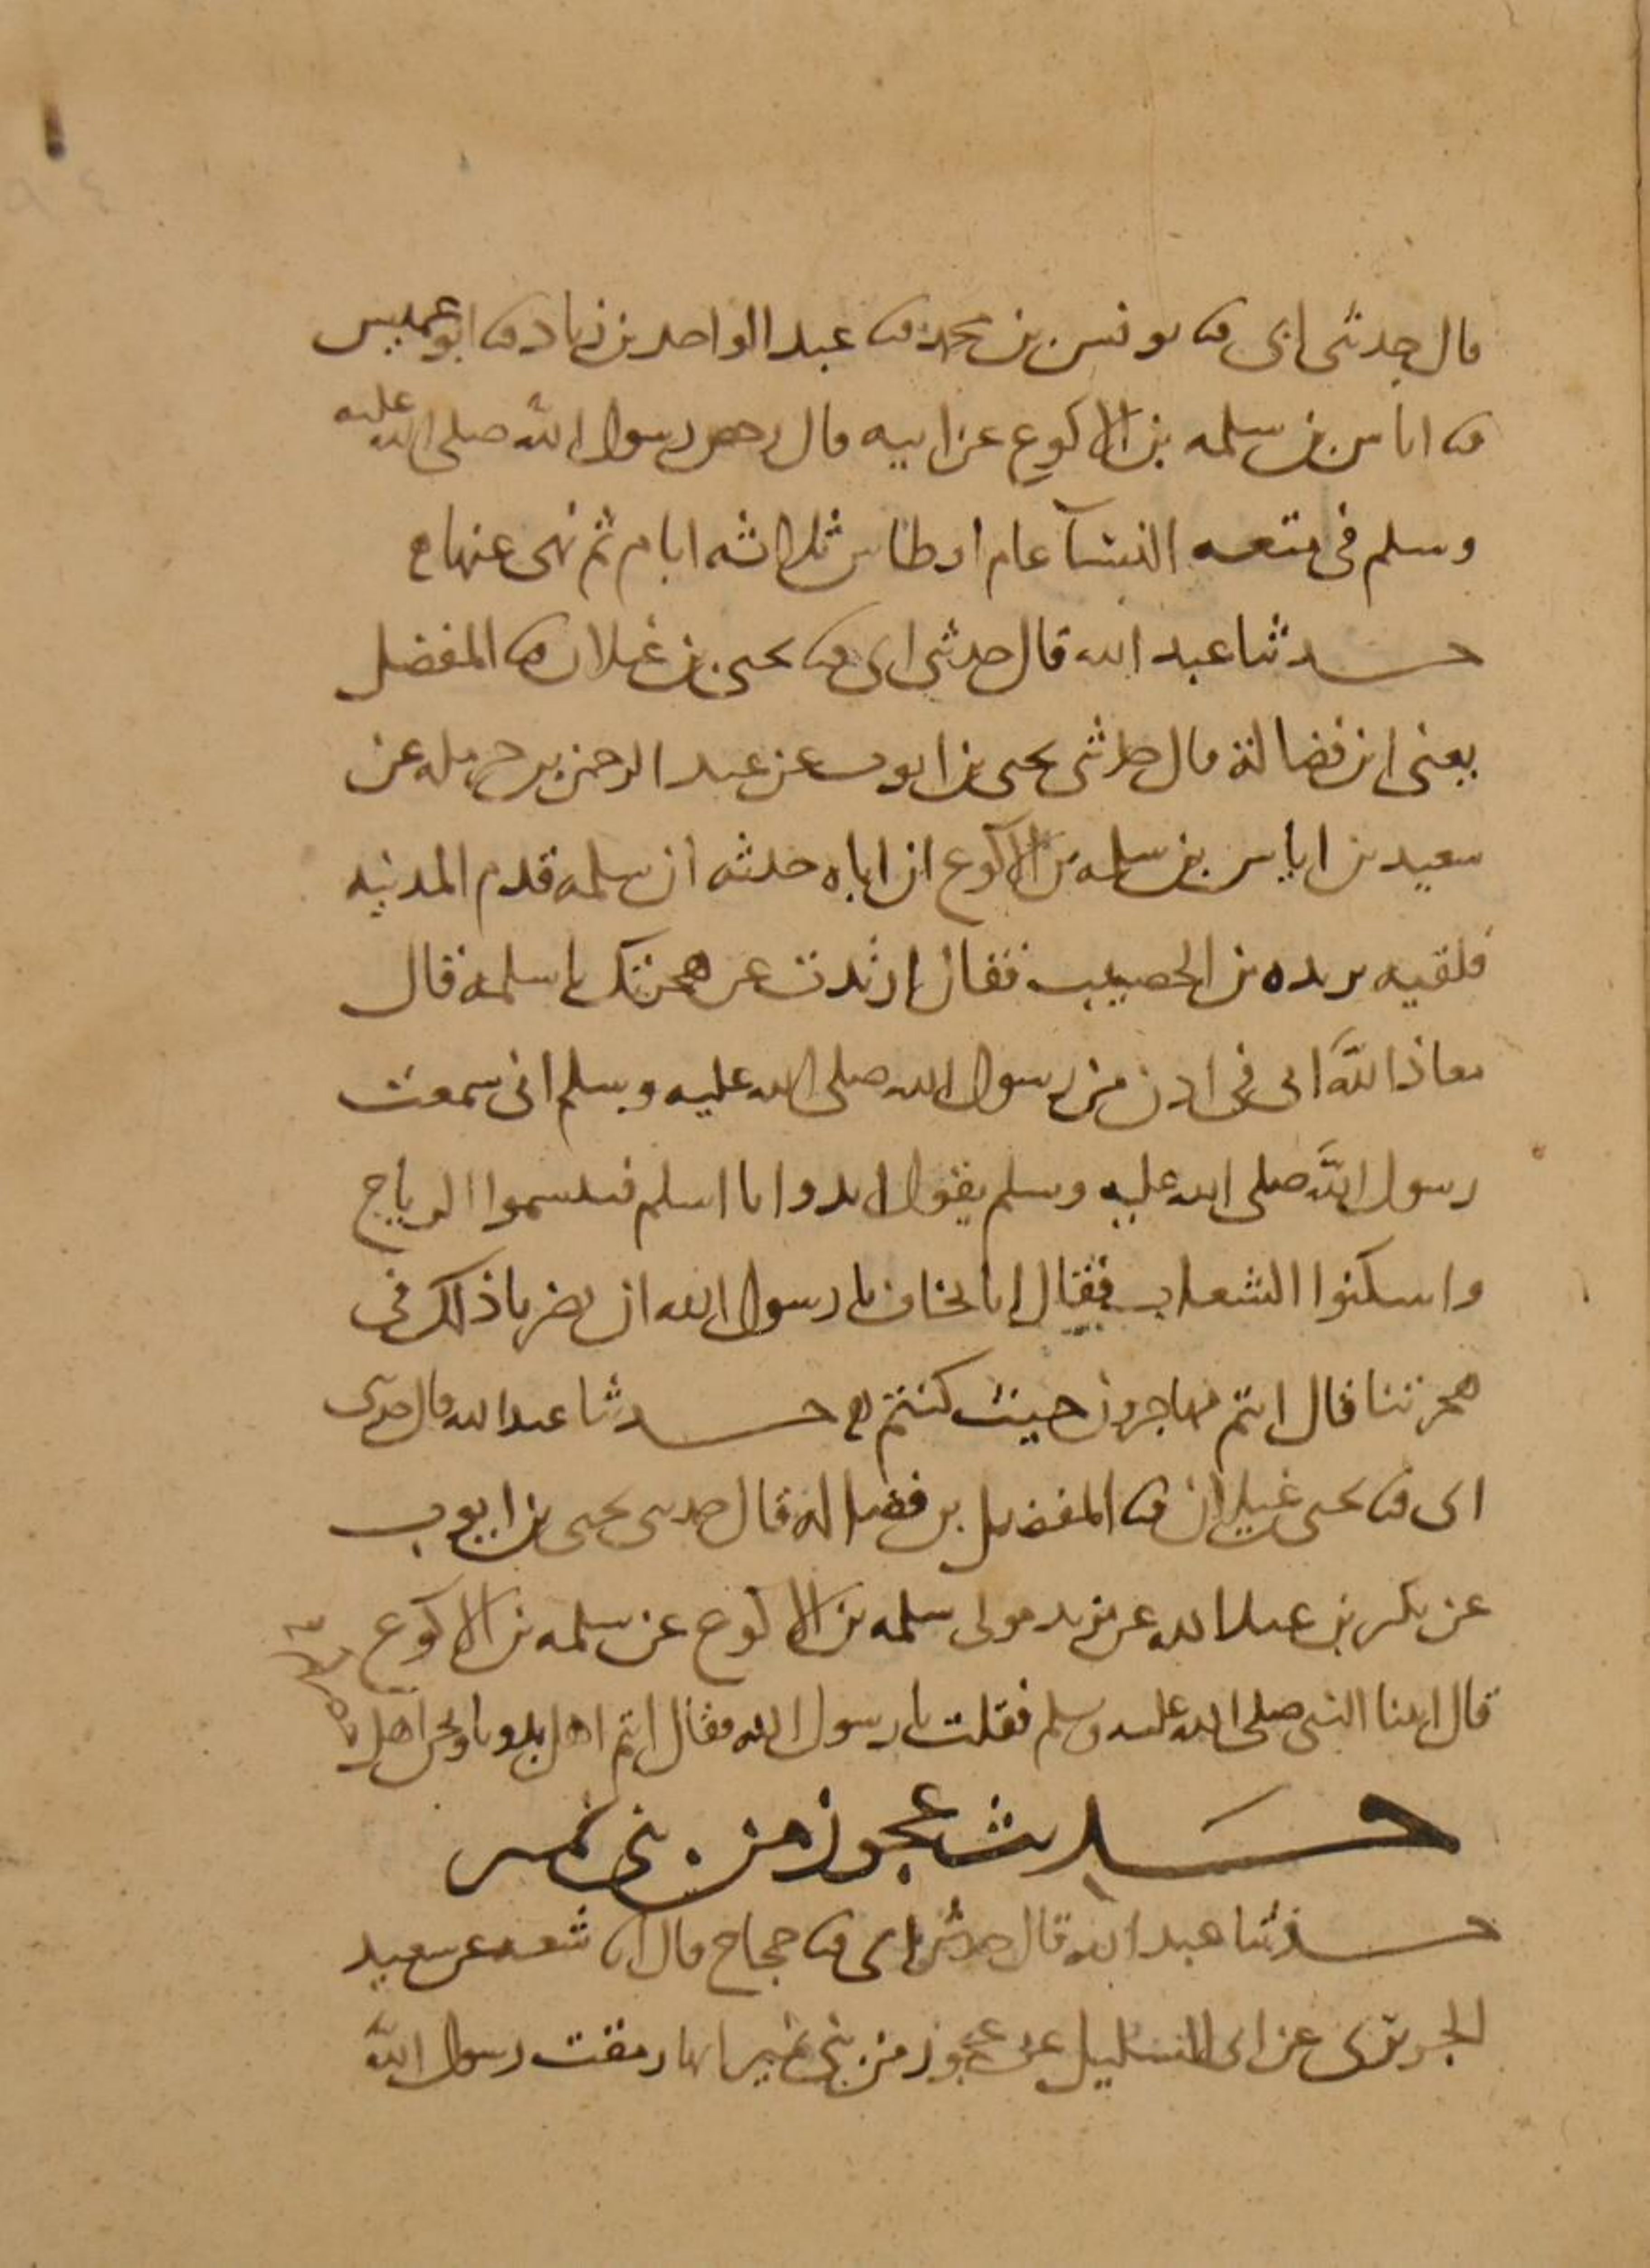 قال حدثنى ابى ثنا يونس بن محمد ثنا عبد الواحد بن زياد ثنا ابو عميس
ثنا اياس بن سلمه بن الاكوع عن ابيه قال رخص رسول الله صلى الله عليه
وسلم فى متعه النسآ عام اوطاس ثلاثه ايام ثم نهى عنها
حدثنا عبد الله قال حدثنى ابى ثنا يحيى بن غيلان ثنا المفضل
يعنى ابن فضالة قال حدثنى يحيى بن ايوب عن عبد الرحمن بن حرمله عن
سعيد بن اياس بن سلمه بن الاكوع ان اباه حدثه ان سلمه قدم المدينه
فلقيه بريده بن الحصيب فقال ارتددت عن هجرتك يا سلمه قال
معاذ الله انى فى اذن من رسول الله صلى الله عليه وسلم انى سمعت
رسول الله صلى الله عليه وسلم يقول ابدوا يا اسلم فتنسموا الرياح
واسكنوا الشعاب فقال انا نخاف يا رسول الله ان يضرنا ذلك فى
هجرتنا قال انتم مهاجرون حيث كنتم حدثنا عبد الله قال حدثنى
ابى ثنا يحيى غيلان ثنا المفضل بن فضاله قال حدثنى يحيى بن ايوب
عن بكر بن عبد الله عن يزيد مولى سلمه بن الاكوع عن سلمه بن الاكوع
قال النبى صلى الله عليه وسلم فقلت يا رسول الله فقال انتم اهل بدونا ونحن اهل
حديث عجوز من بنى نمير
حدثنا عبد الله قال حدثنى ابى ثنا حجاج قال انا شعبه عن سعيد
الجريرى عن ابى السليل عن عجوز من بنى نمير انها رمقت رسول الله